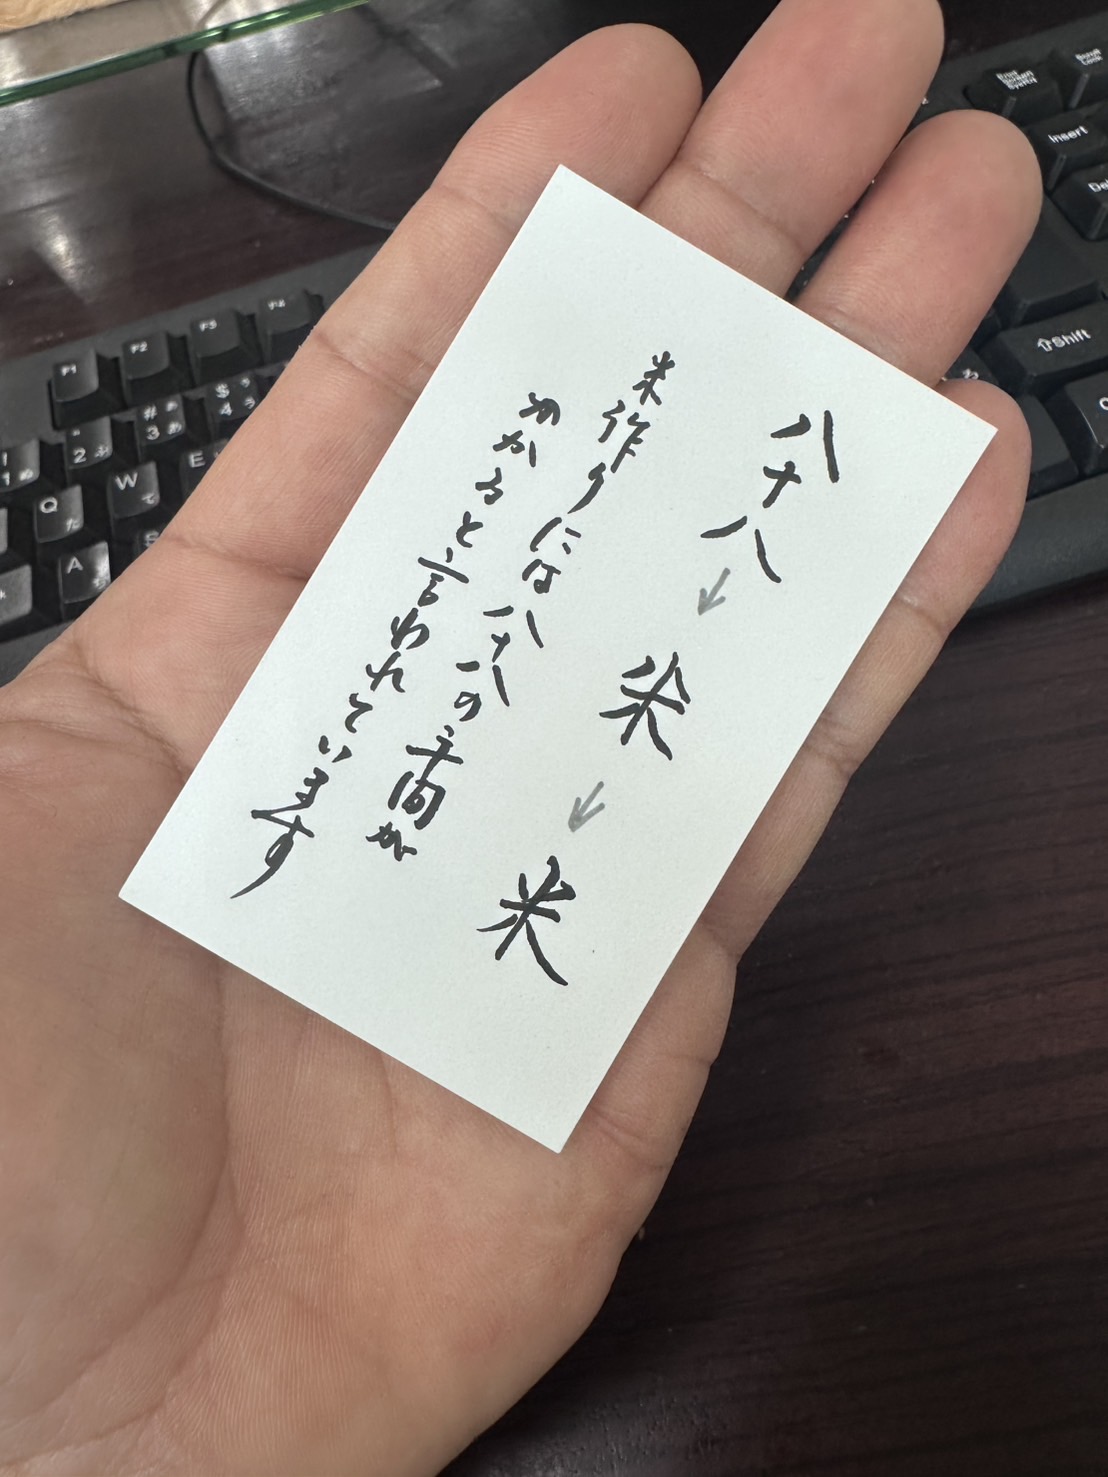 八十八→米→米
米作りには八十八の手間が
かかると言われています
Print Screen SysRq
Scroll Lock
Insert
Shift
F1
F2
F3
F4
# ぁ 3 あ
$ ぅ 4 う
2 ふ
! 1 ぬ
Q た
W て
E
A
S